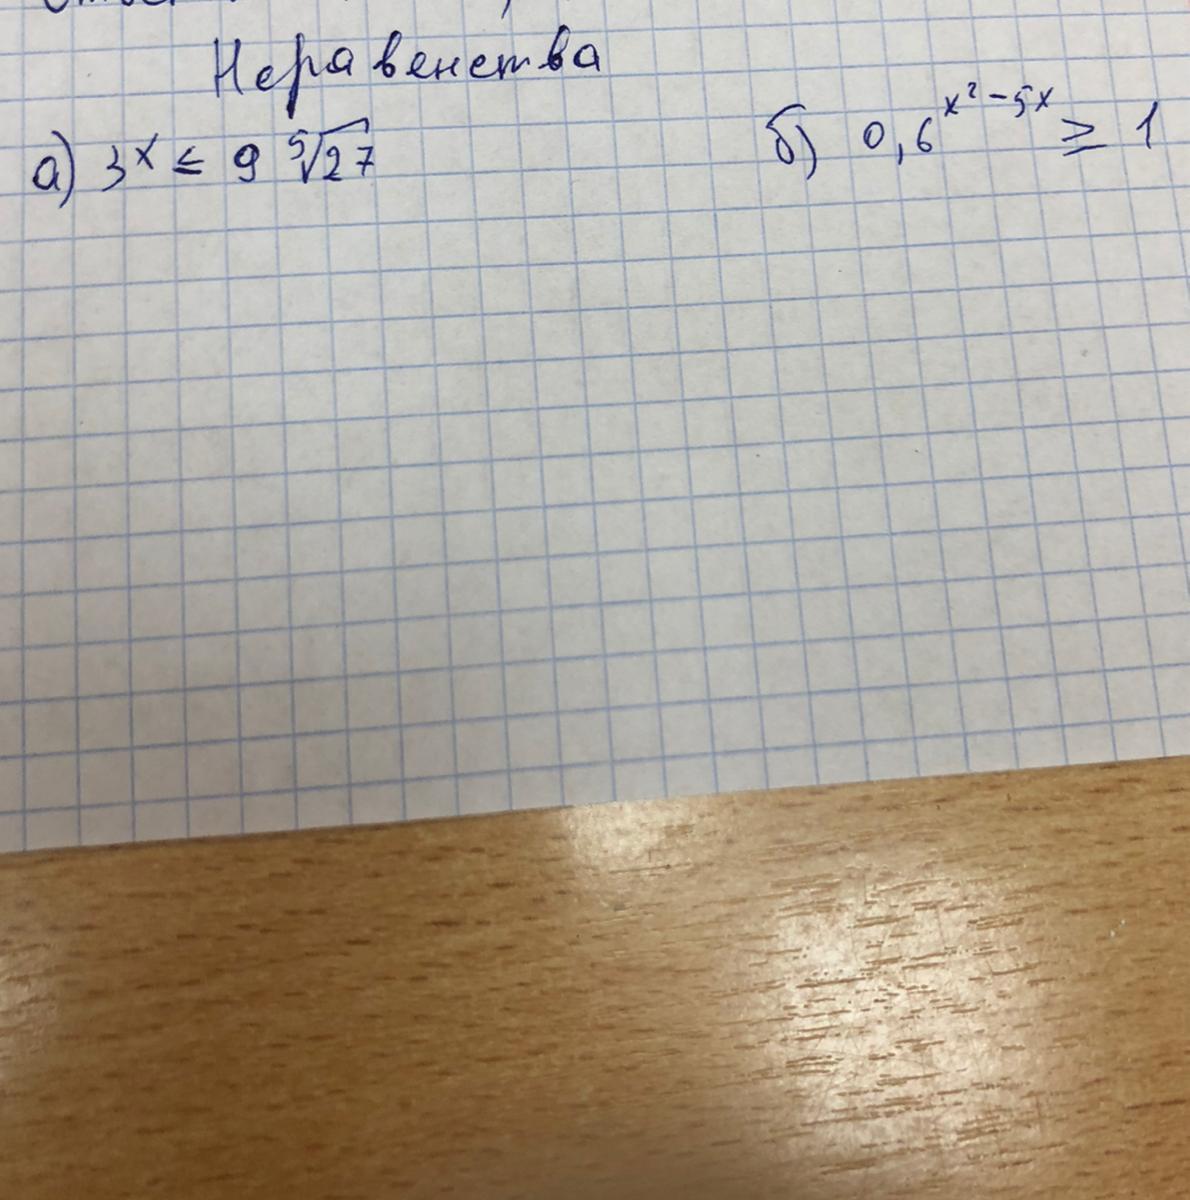 Неравенства
а) 3^x ≤ 9 ⁵√27 б) 0,6^(x²-5x) ≥ 1